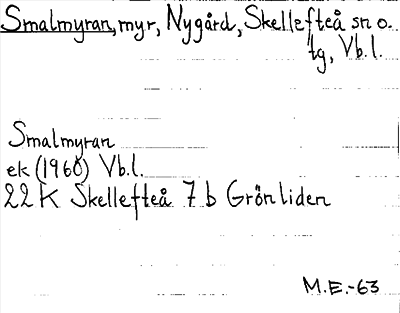 Smalmyran, myr, Nygård, Skellefteå sn o.
tg, Vb.l.
Smalmyran
ek (1960) Vb.l.
22 K Skellefteå 7 b Grönliden
M.E.-63